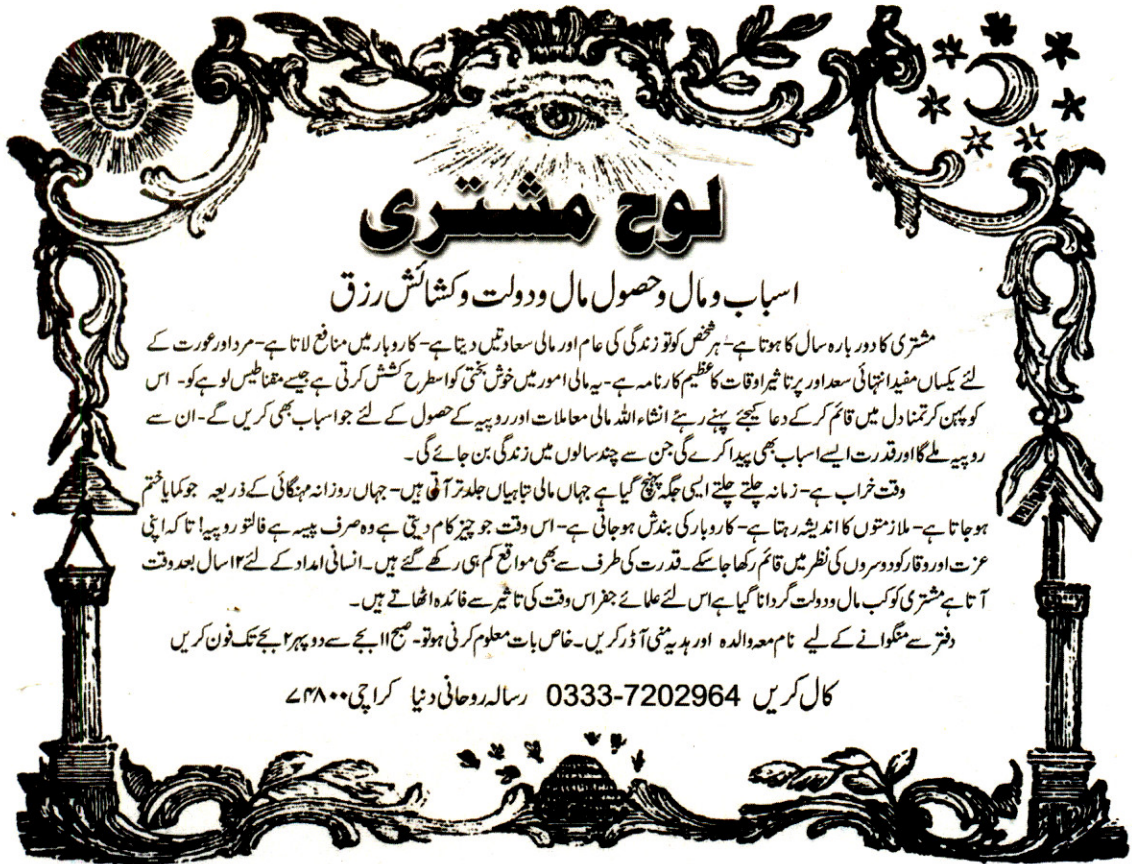 لوح مشتری
اسباب و مال و حصول مال و دولت و کشائش رزق
مشتری کا دور بارہ سال کا ہوتا ہے۔ ہر شخص کو تو زندگی کی عام اور مالی سعادتیں دیتا ہے۔ کاروبار میں منافع لاتا ہے۔ مرد اور عورت کے
لئے یکساں مفید انتہائی سعد اور پر تاثیر اوقات کا عظیم کارنامہ ہے۔ یہ مالی امور میں خوش بختی کو اسطرح کشش کرتی ہے جیسے مقناطیس لوہے کو۔ اس
کو پہن کر تمنا دل میں قائم کر کے دعا کیجئے پہنے رہئے انشاء اللہ مالی معاملات اور روپیہ کے حصول کے لئے جو اسباب بھی کریں گے۔ ان سے
روپیہ ملے گا اور قدرت ایسے اسباب بھی پیدا کرے گی جن سے چند سالوں میں زندگی بن جائے گی۔
وقت خراب ہے۔ زمانہ چلتے چلتے ایسی جگہ پہنچ گیا ہے جہاں مالی تباہیاں جلد تر آتی ہیں۔ جہاں روزانہ مہنگائی کے ذریعہ جو کمایا ختم
ہو جاتا ہے۔ ملازمتوں کا اندیشہ رہتا ہے۔ کاروبار کی بندش ہو جاتی ہے۔ اس وقت جو چیز کام دیتی ہے وہ صرف پیسہ ہے فالتو روپیہ! تا کہ اپنی
عزت اور وقار کو دوسروں کی نظر میں قائم رکھا جا سکے۔ قدرت کی طرف سے بھی مواقع کم ہی رکھے گئے ہیں۔ انسانی امداد کے لئے ۱۲ سال بعد وقت
آتا ہے مشتری کو کب مال و دولت گردانا گیا ہے اس لئے علمائے جفر اس وقت کی تاثیر سے فائدہ اٹھاتے ہیں۔
دفتر سے منگوانے کے لیے نام معہ والدہ اور ہدیہ منی آڈر کریں۔ خاص بات معلوم کرنی ہو تو۔ صبح ۱۱ بجے سے دوپہر ۲ بجے تک فون کریں
کال کریں 0333-7202964 رسالہ روحانی دنیا کراچی ۷۴۸۰۰